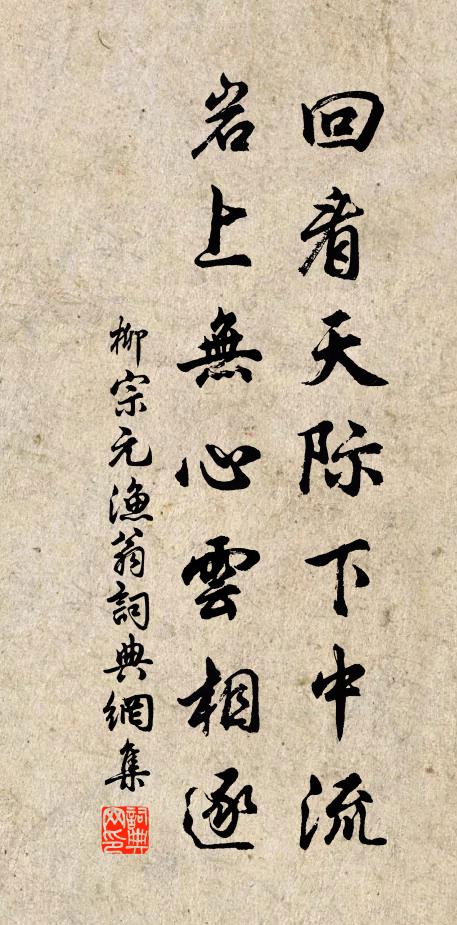 回看天际下中流
岩上無心雲相逐
柳宗元漁翁詞典網集
詞典網印